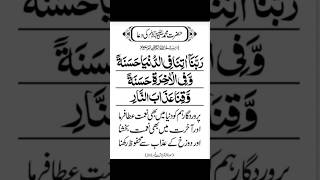 حضرت محمد ﷺ کی دعا
رَبَّنَآ اٰتِنَا فِی الدُّنْیَا حَسَنَةً
وَّفِی الْاٰخِرَةِ حَسَنَةً
وَّقِنَا عَذَابَ النَّارِ
پروردگار ہم کو دنیا میں بھی نعمت عطا فرما
اور آخرت میں بھی نعمت بخشنا
اور دوزخ کے عذاب سے محفوظ رکھنا